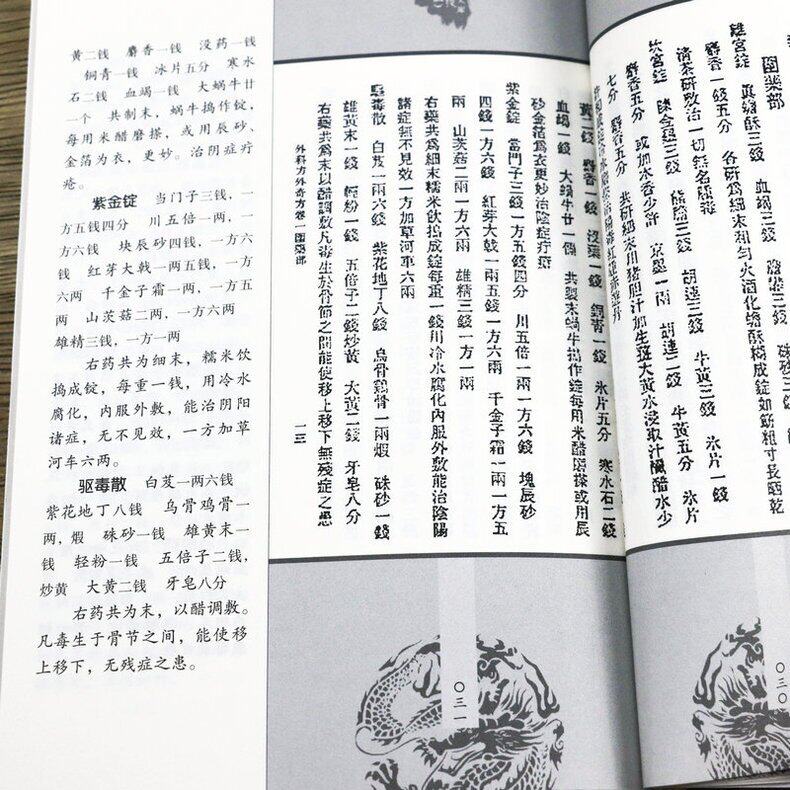 黄二钱 麝香一钱 没药一钱
铜青一钱 冰片五分 寒水
石二钱 血竭一钱 大蜗牛廿
一个 共制末，蜗牛捣作锭，
每用米醋磨搽，或用辰砂、
金箔为衣，更妙。治阴症疔
疮。
紫金锭 当门子三钱，一
方五钱四分 川五倍一两，一
方六钱 块辰砂四钱，一方六
钱 红芽大戟一两五钱，一方
六两 千金子霜一两，一方五
两 山茨菇二两，一方六两
雄精三钱，一方一两
右药共为细末，糯米饮
捣成锭，每重一钱，用冷水
腐化，内服外敷，能治阴阳
诸症，无不见效，一方加草
河车六两。
驱毒散 白芨一两六钱
紫花地丁八钱 乌骨鸡骨一
两，煅 硃砂一钱 雄黄末一
钱 轻粉一钱 五倍子二钱，
炒黄 大黄二钱 牙皂八分
右药共为末，以醋调敷。
凡毒生于骨节之间，能使移
上移下，无残症之患。
圍藥部
離宮錠 血竭三錢
麝香一錢五分 各研為細末和勻火酒化蟾酥糊成錠如筯粗寸長晒乾
清茶研敷治一切無名腫毒
坎宮錠 陳金墨三錢 熊膽三錢 胡連三錢 牛黃三錢 氷片一錢
七分 麝香五分 共研細末用猪胆汁加生大黃水浸取汁釅醋水少
黃二錢 麝香一錢 沒藥一錢 銅青一錢 氷片五分 寒水石二錢
血竭一錢 大蝸牛廿一個 共製末蝸牛搗作錠每用米醋磨搽或用辰
砂金箔爲衣更妙治陰症疔瘡
紫金錠 當門子三錢一方五錢四分 川五倍一兩一方六錢 塊辰砂
四錢一方六錢 紅芽大戟一兩五錢一方六兩 千金子霜一兩一方五
兩 山茨菇二兩一方六兩 雄精三錢一方一兩
右藥共爲細末糯米飲搗成錠每重一錢用冷水腐化內服外敷能治陰陽
諸症無不見效一方加草河車六兩
驅毒散 白芨一兩六錢 紫花地丁八錢 烏骨鷄骨一兩煅 硃砂一錢
雄黃末一錢 輕粉一錢 五倍子二錢炒黃 大黃二錢 牙皂八分
右藥共爲末以醋調敷凡毒生於骨節之間能使移上移下無殘症之患
外科方外奇方卷一圍藥部 一三
〇三一
〇三〇